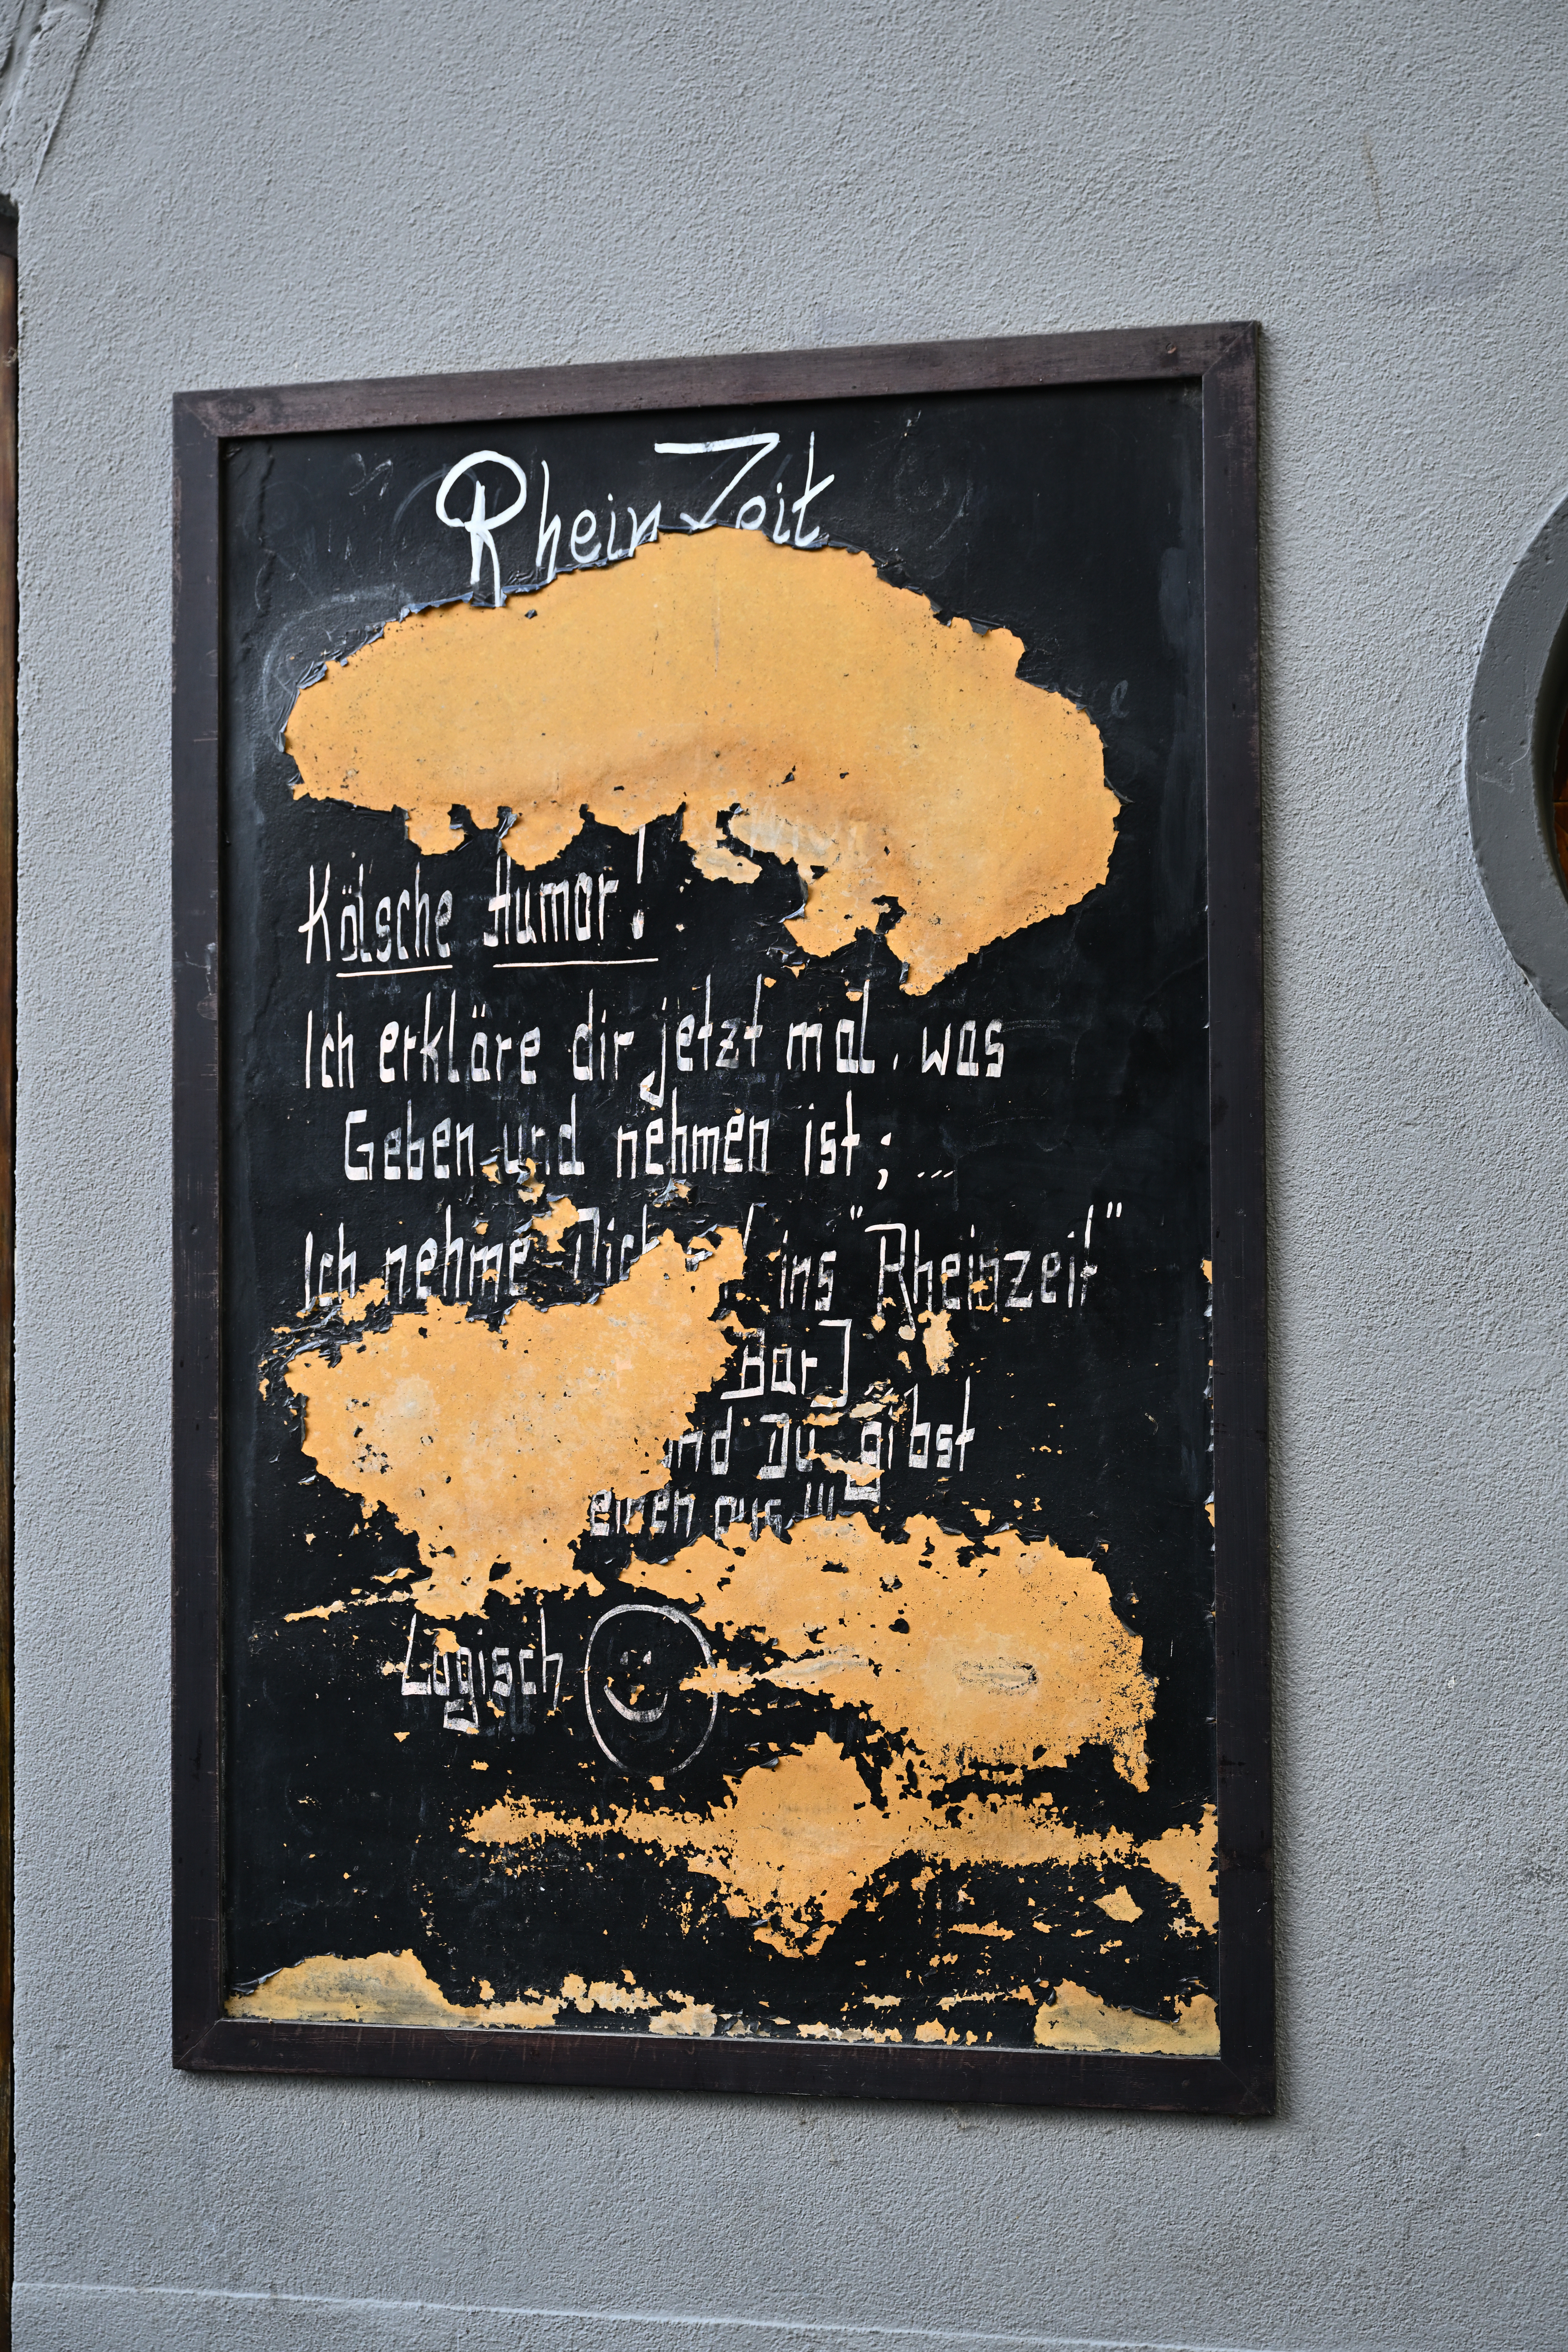 Rhein Zeit
Kölsche Humor!
Ich erkläre dir jetzt mal, was
Geben und nehmen ist; ...
Ich nehme Dich ins "Rheinzeit"
Bar]
und Du gibst
einen aus !!!
Logisch